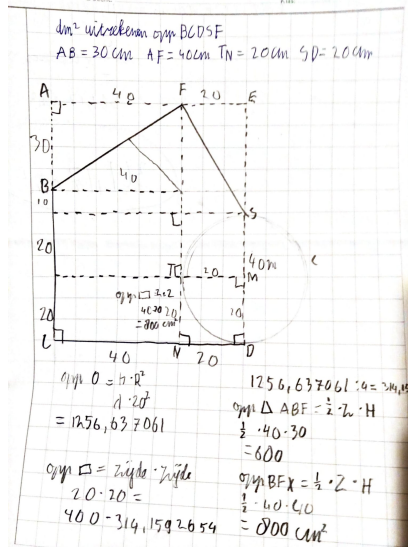 dm² uitrekenen opp BCDSF
AB = 30 cm AF = 40 cm TN = 20 cm SD = 20 cm
A 40 F 20 E
30
B
10
40
S
20
40
T 20 M
opp □ z·z
20
= 800 cm²
20
20
C N D
40 20
opp O = π·R²
π·20²
= 1256,637061
opp □ = zijde · zijde
20·20 =
400 - 314,1592654
1256,637061 : 4 = 314,15
opp Δ ABF = ½·Z·H
½·40·30
= 600
opp BFX = ½·Z·H
½·40·40
= 800 cm²